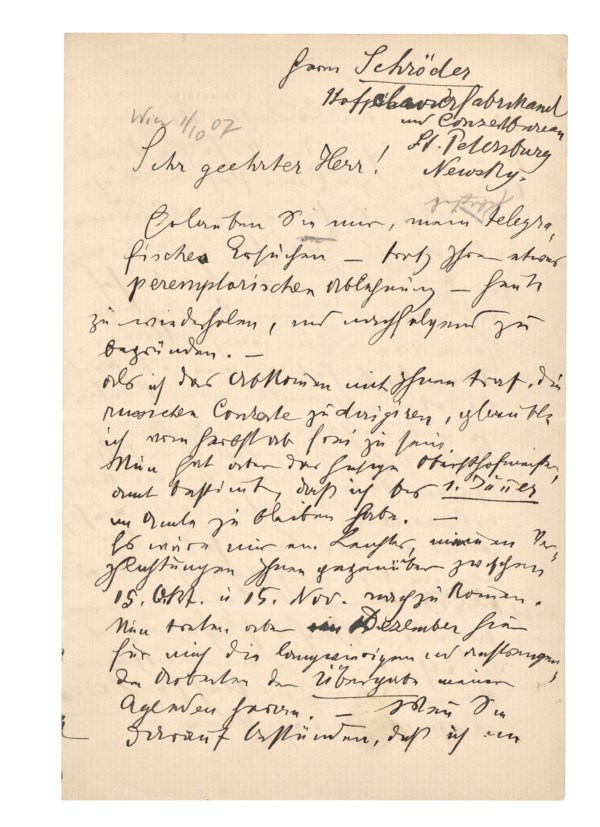 Herrn Schröder
Hofclavierfabrikant
und Conzertbureau
St. Petersburg
Newsky.
Wien 11/10 07
Sehr geehrter Herr!
Erlauben Sie mir, mein telegra-
fisches Ersuchen – trotz Ihrer etwas
peremptorischen Ablehnung – heute
zu wiederholen, und nachfolgend zu
begründen. –
Als ich das Abkommen mit Ihnen traf, die
russischen Conzerte zu dirigiren, glaubte
ich vom Herbst ab frei zu sein.
Nun hat aber das hiesige Obersthofmeister-
amt bestimmt, daß ich bis 1. Jänner
im Amte zu bleiben habe. –
Es wäre mir ein Leichtes, meinen Ver-
pflichtungen Ihnen gegenüber zwischen
15. Okt. u 15. Nov. nachzukommen.
Nun treten aber im Dezember hier
für mich die langwierigen und anstrengen-
den Arbeiten der Übergabe meiner
Agenden heran. – Wenn Sie
darauf bestünden, daß ich im